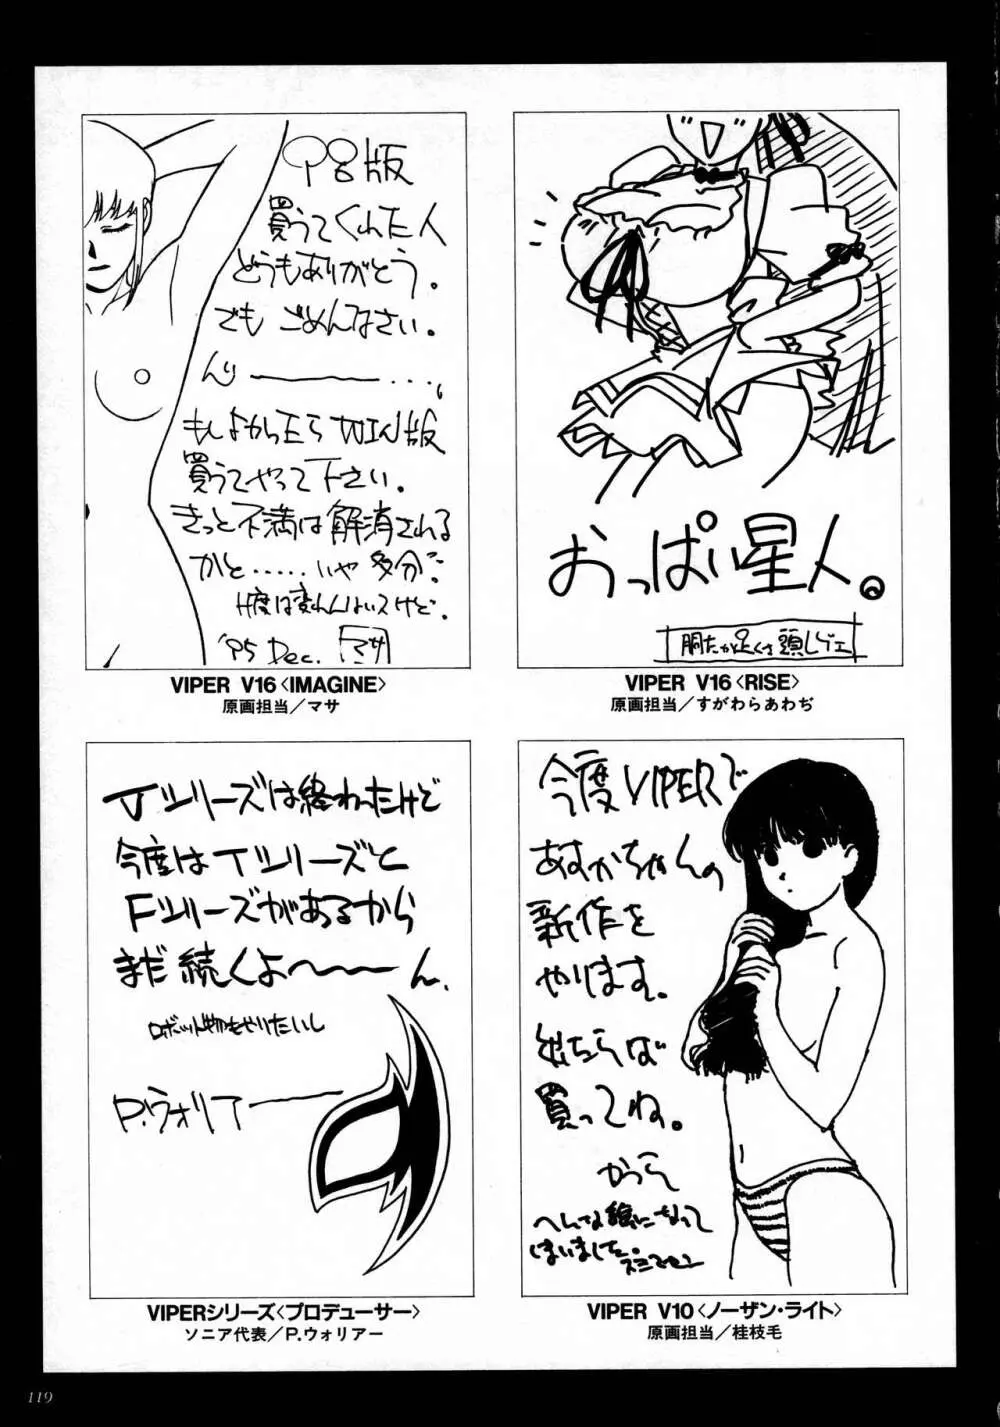 98版
買うてくれた人
どうもありがとう。
でも ごめんなさい。
ん〜‥‥、
もしよかったら WIN版
買うてやって下さい。
きっと不満は解消される
かと‥‥‥いや 多分‥
H度は変わんないスけど。
'95 Dec. マサ
VIPER V16〈IMAGINE〉
原画担当／マサ
おっぱい星人。
VIPER V16〈RISE〉
原画担当／すがわらあわぢ
シリーズは終わったけど
今度はTシリーズと
Fシリーズがあるから
まだ続くよ〜〜ん、
ロボット物もやりたいし
P.ウォリアー
VIPERシリーズ〈プロデューサー〉
ソニア代表／P.ウォリアー
今度VIPERで
あすかちゃんの
新作を
やります。
出たらば
買ってね。
かつら
へんな絵になって
しまいました。スミマセン
VIPER V10〈ノーザン・ライト〉
原画担当／桂枝毛
119